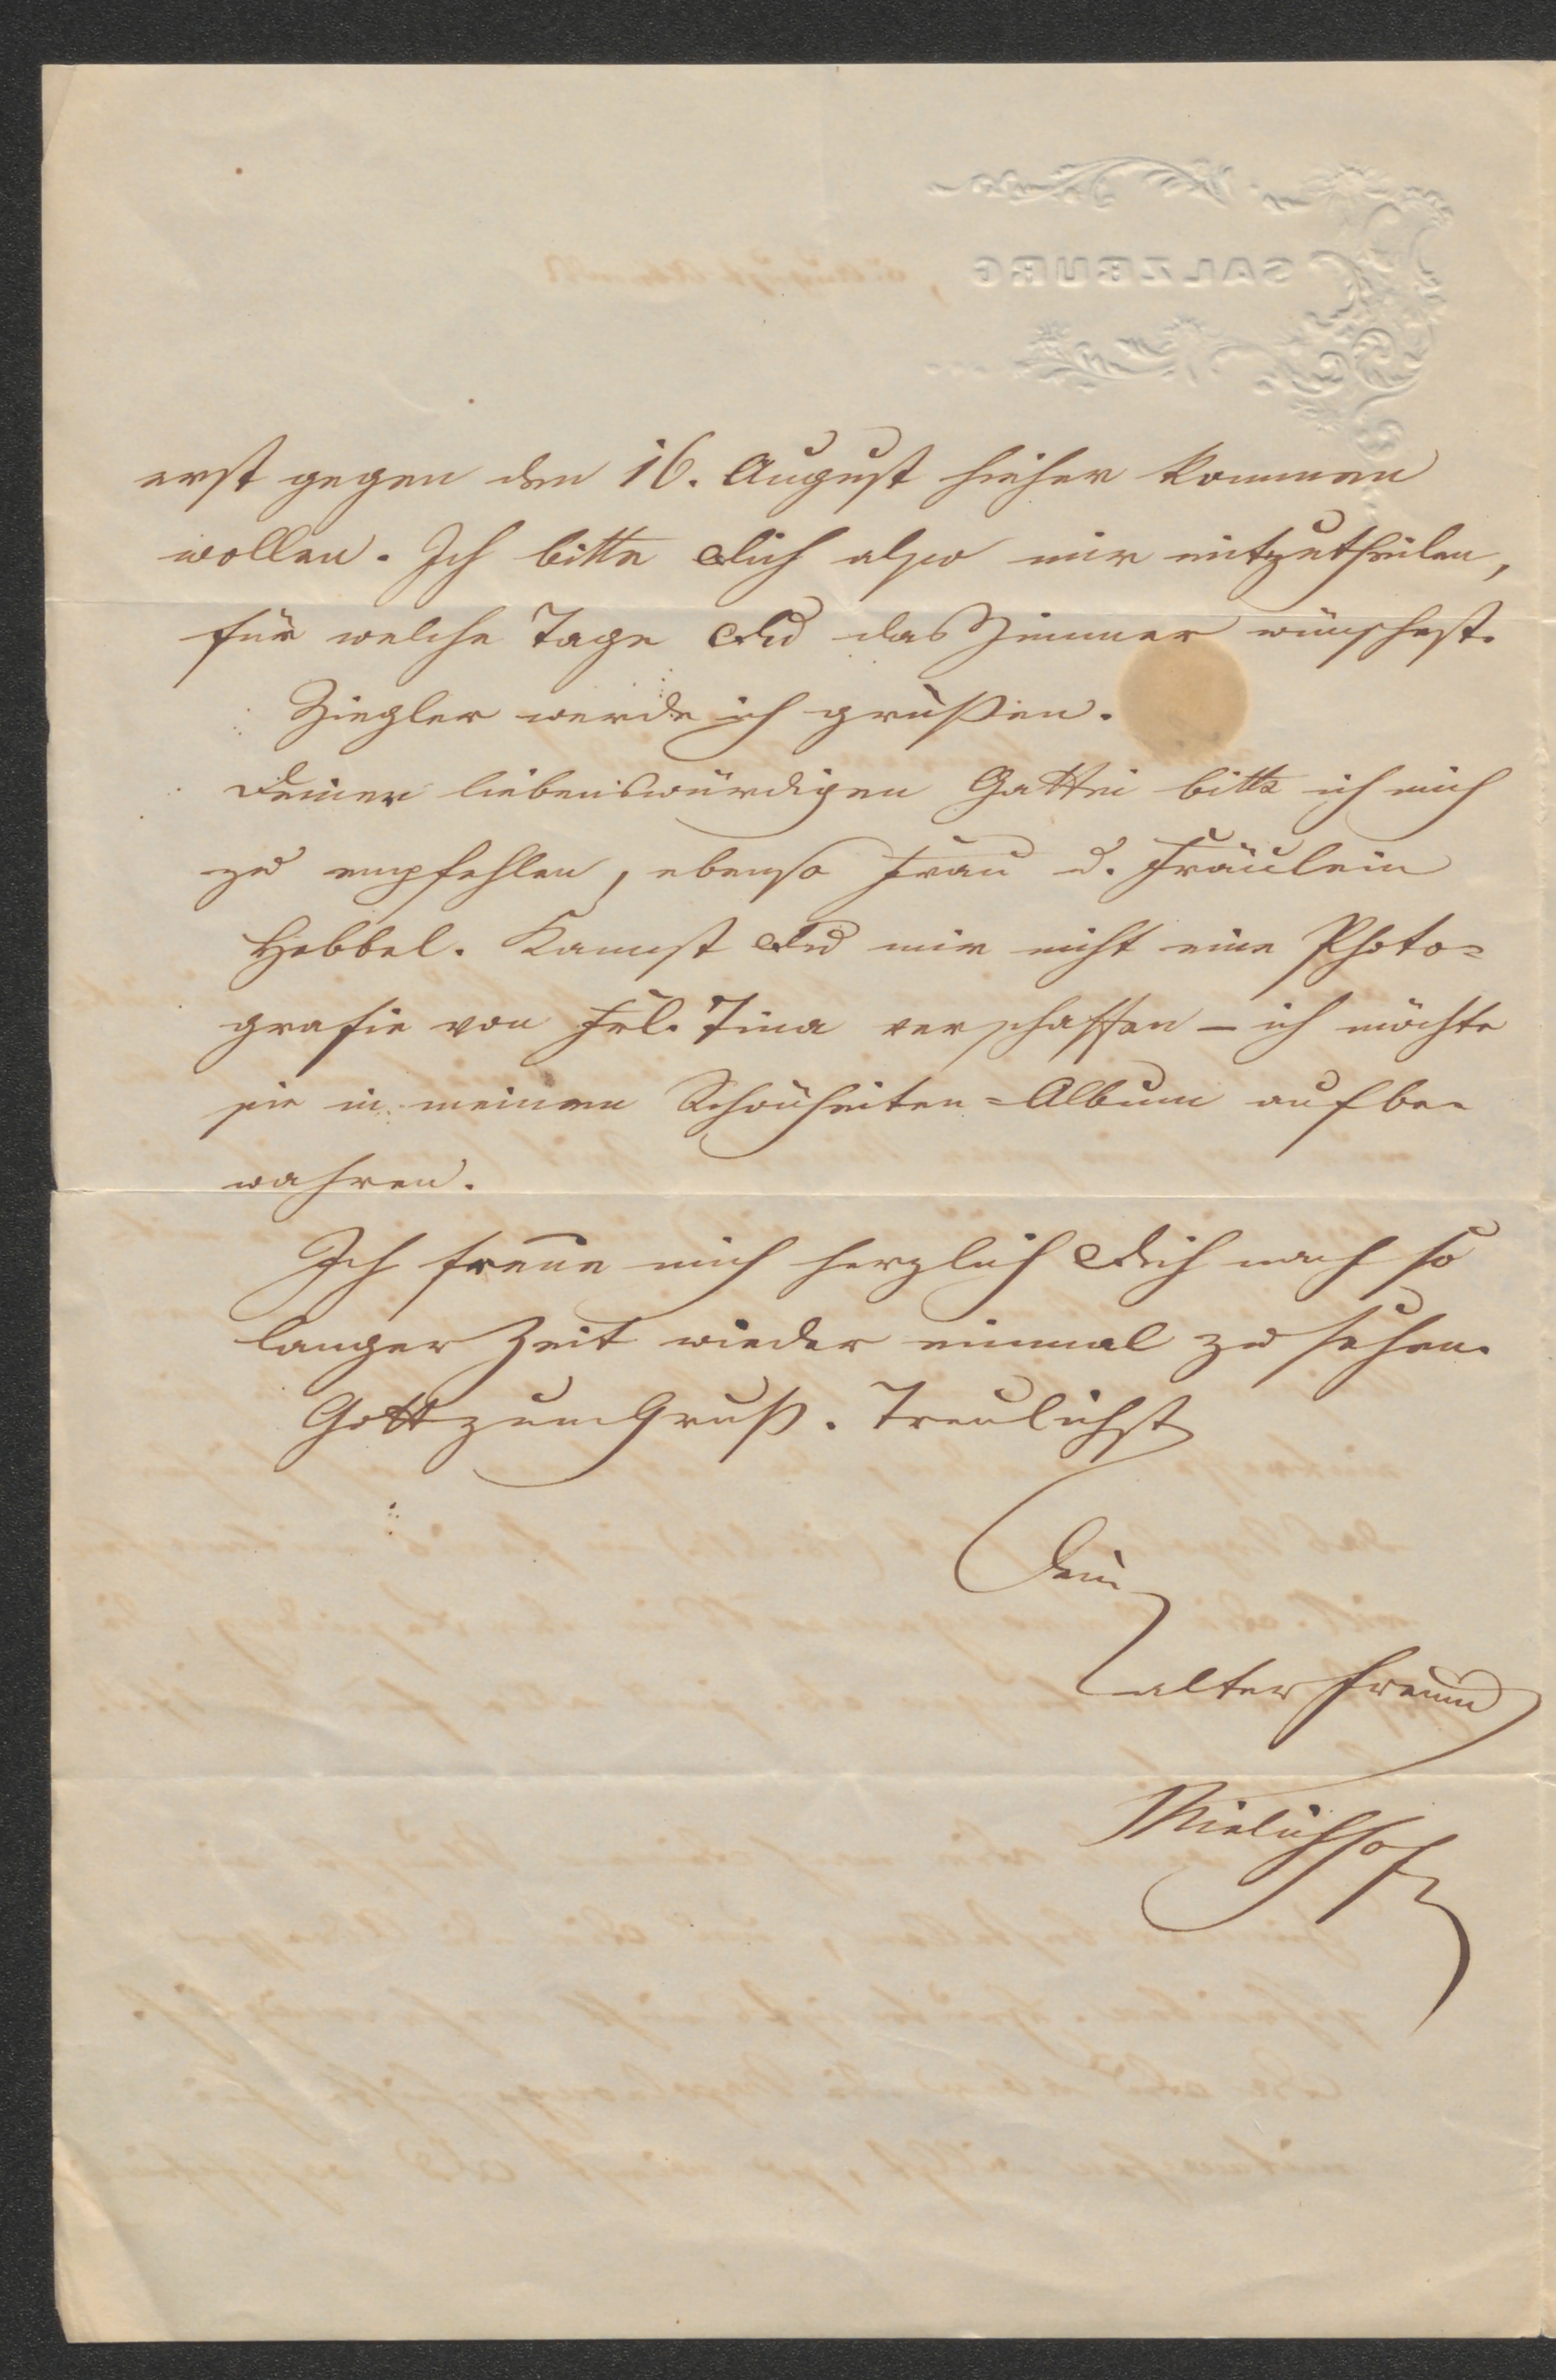 SALZBURG
erst gegen den 16. August hieher kommen
wollen. Ich bitte Dich also mir mitzutheilen,
für welche Tage Du das Zimmer wünschest.
Ziegler werde ich grüßen.
Deiner liebenswürdigen Gattin bitte ich mich
zu empfehlen, ebenso Frau u. Fräulein
Hebbel. Kannst Du mir nicht eine Photo=
grafie von Frl. Tina verschaffen – ich möchte
sie in meinem Schönheiten=Album aufbe-
wahren.
Ich freue mich herzlich Dich nach so
langer Zeit wieder einmal zu sehen.
Gott zum Gruß. Treulichst
Dein
alter Freund
Mielichhofer